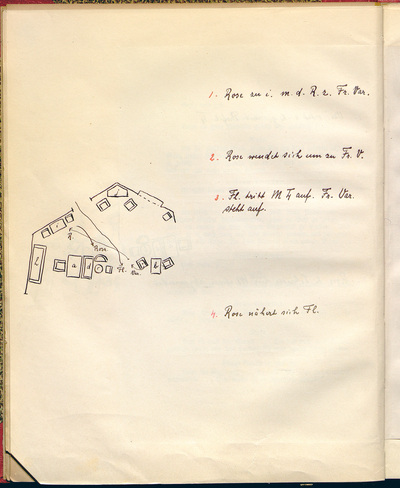 1. Rose zu i. m. d. R. z. Fr. Var.
2. Rose wendet sich um zu Fr. V.
3. Fl. tritt M T auf. Fr. Var.
steht auf.
R.
Rose
h
a
d
Fl.
Va.
b
4. Rose nähert sich Fl.